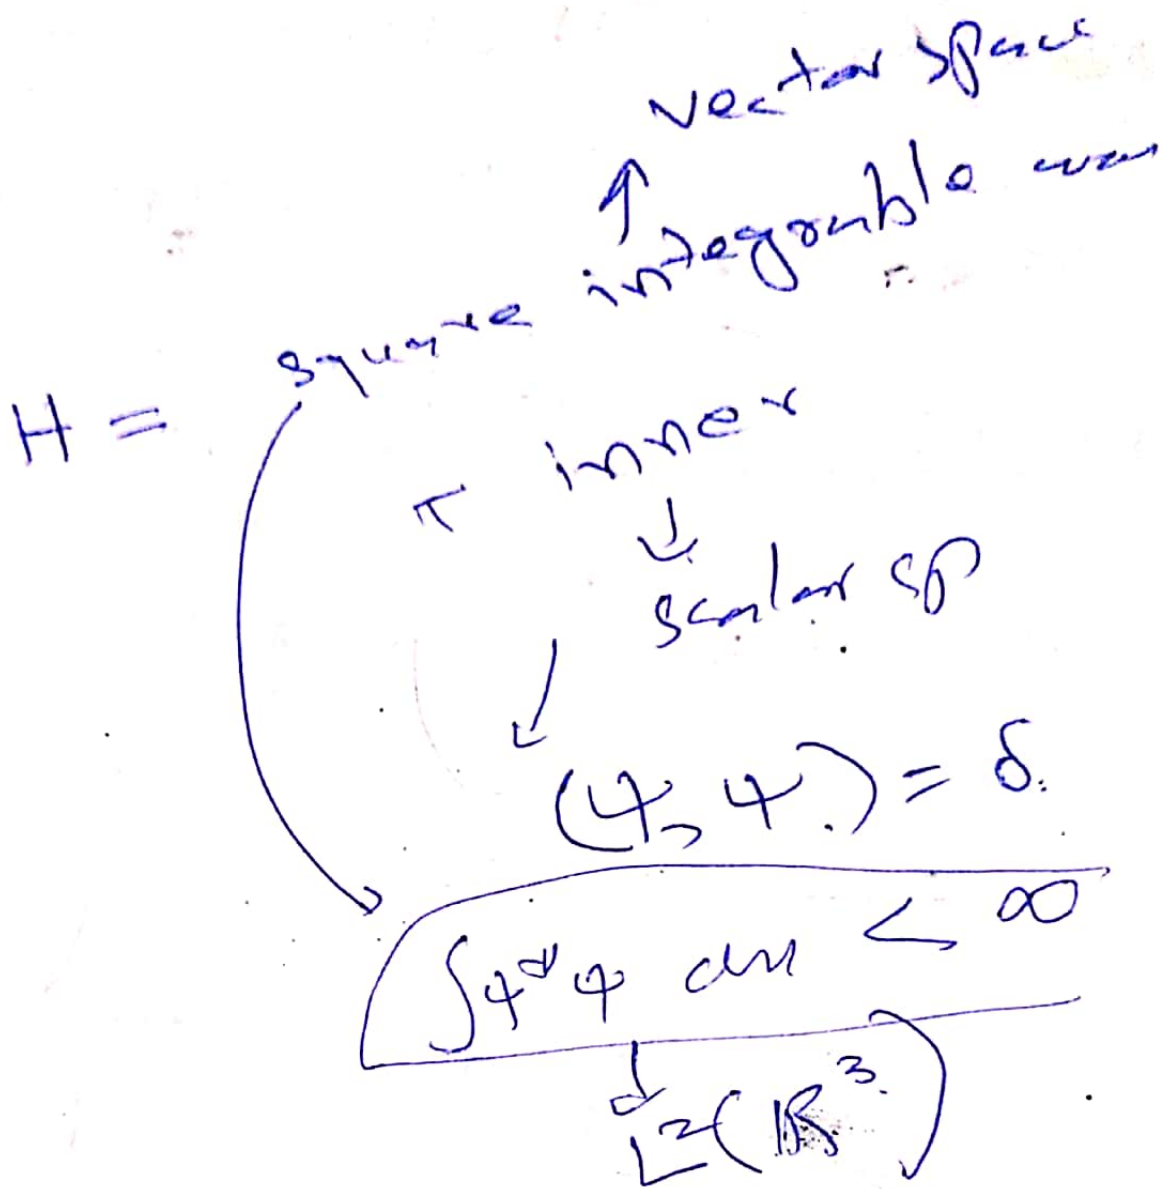 vector space
square integrable
H =
inner
scalar sp
(ψ, ψ) = δ
∫ψ*ψ dx < ∞
L²(ℝ³)